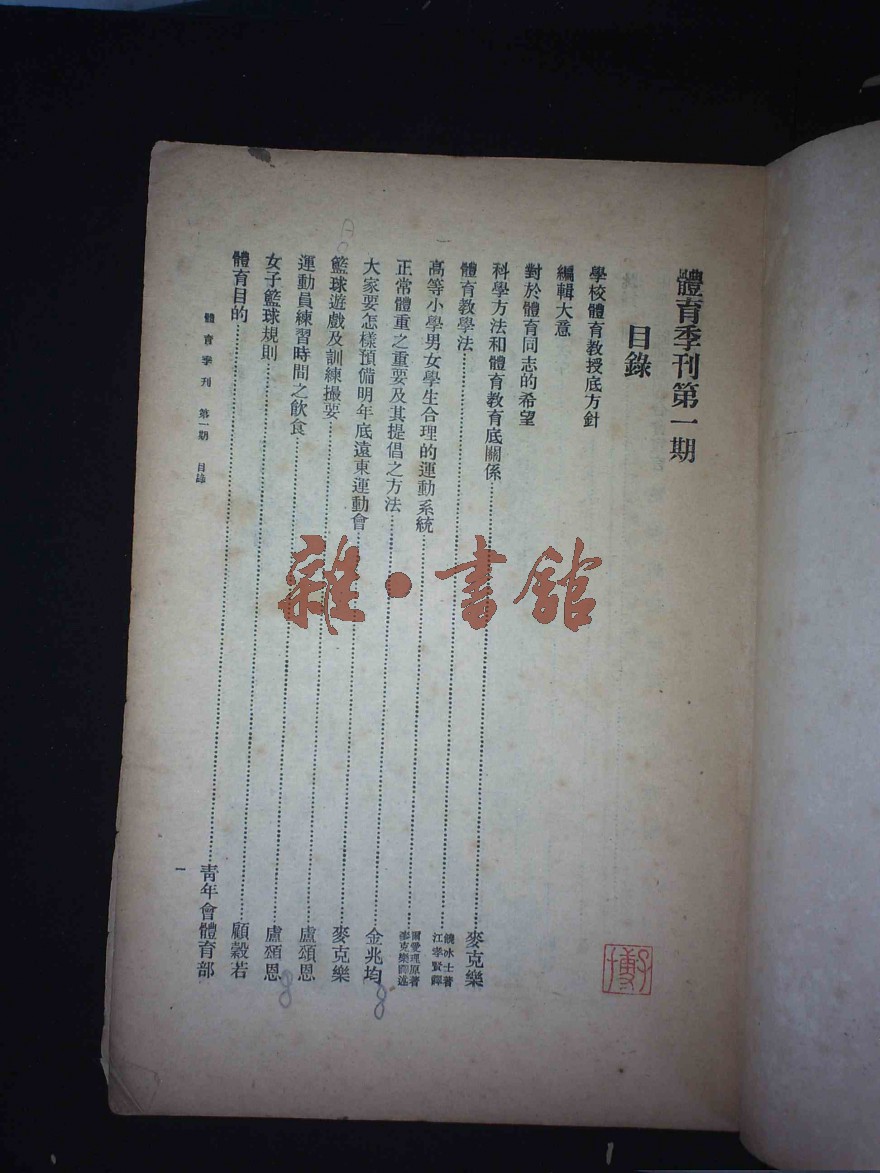 體育季刊第一期
目錄
學校體育教授底方針
編輯大意
對於體育同志的希望
科學方法和體育教育底關係……麥克樂
體育教學法……饒冰士著 江孝賢譯
高等小學男女學生合理的運動系統……爾愛理原著 麥克樂師述
正常體重之重要及其提倡之方法……金兆均
大家要怎樣預備明年底遠東運動會……麥克樂
籃球遊戲及訓練撮要……盧頌恩
運動員練習時間之飲食……盧頌恩
女子籃球規則……顧穀若
體育目的……青年會體育部
體育季刊 第一期 目錄 一
雜·書館